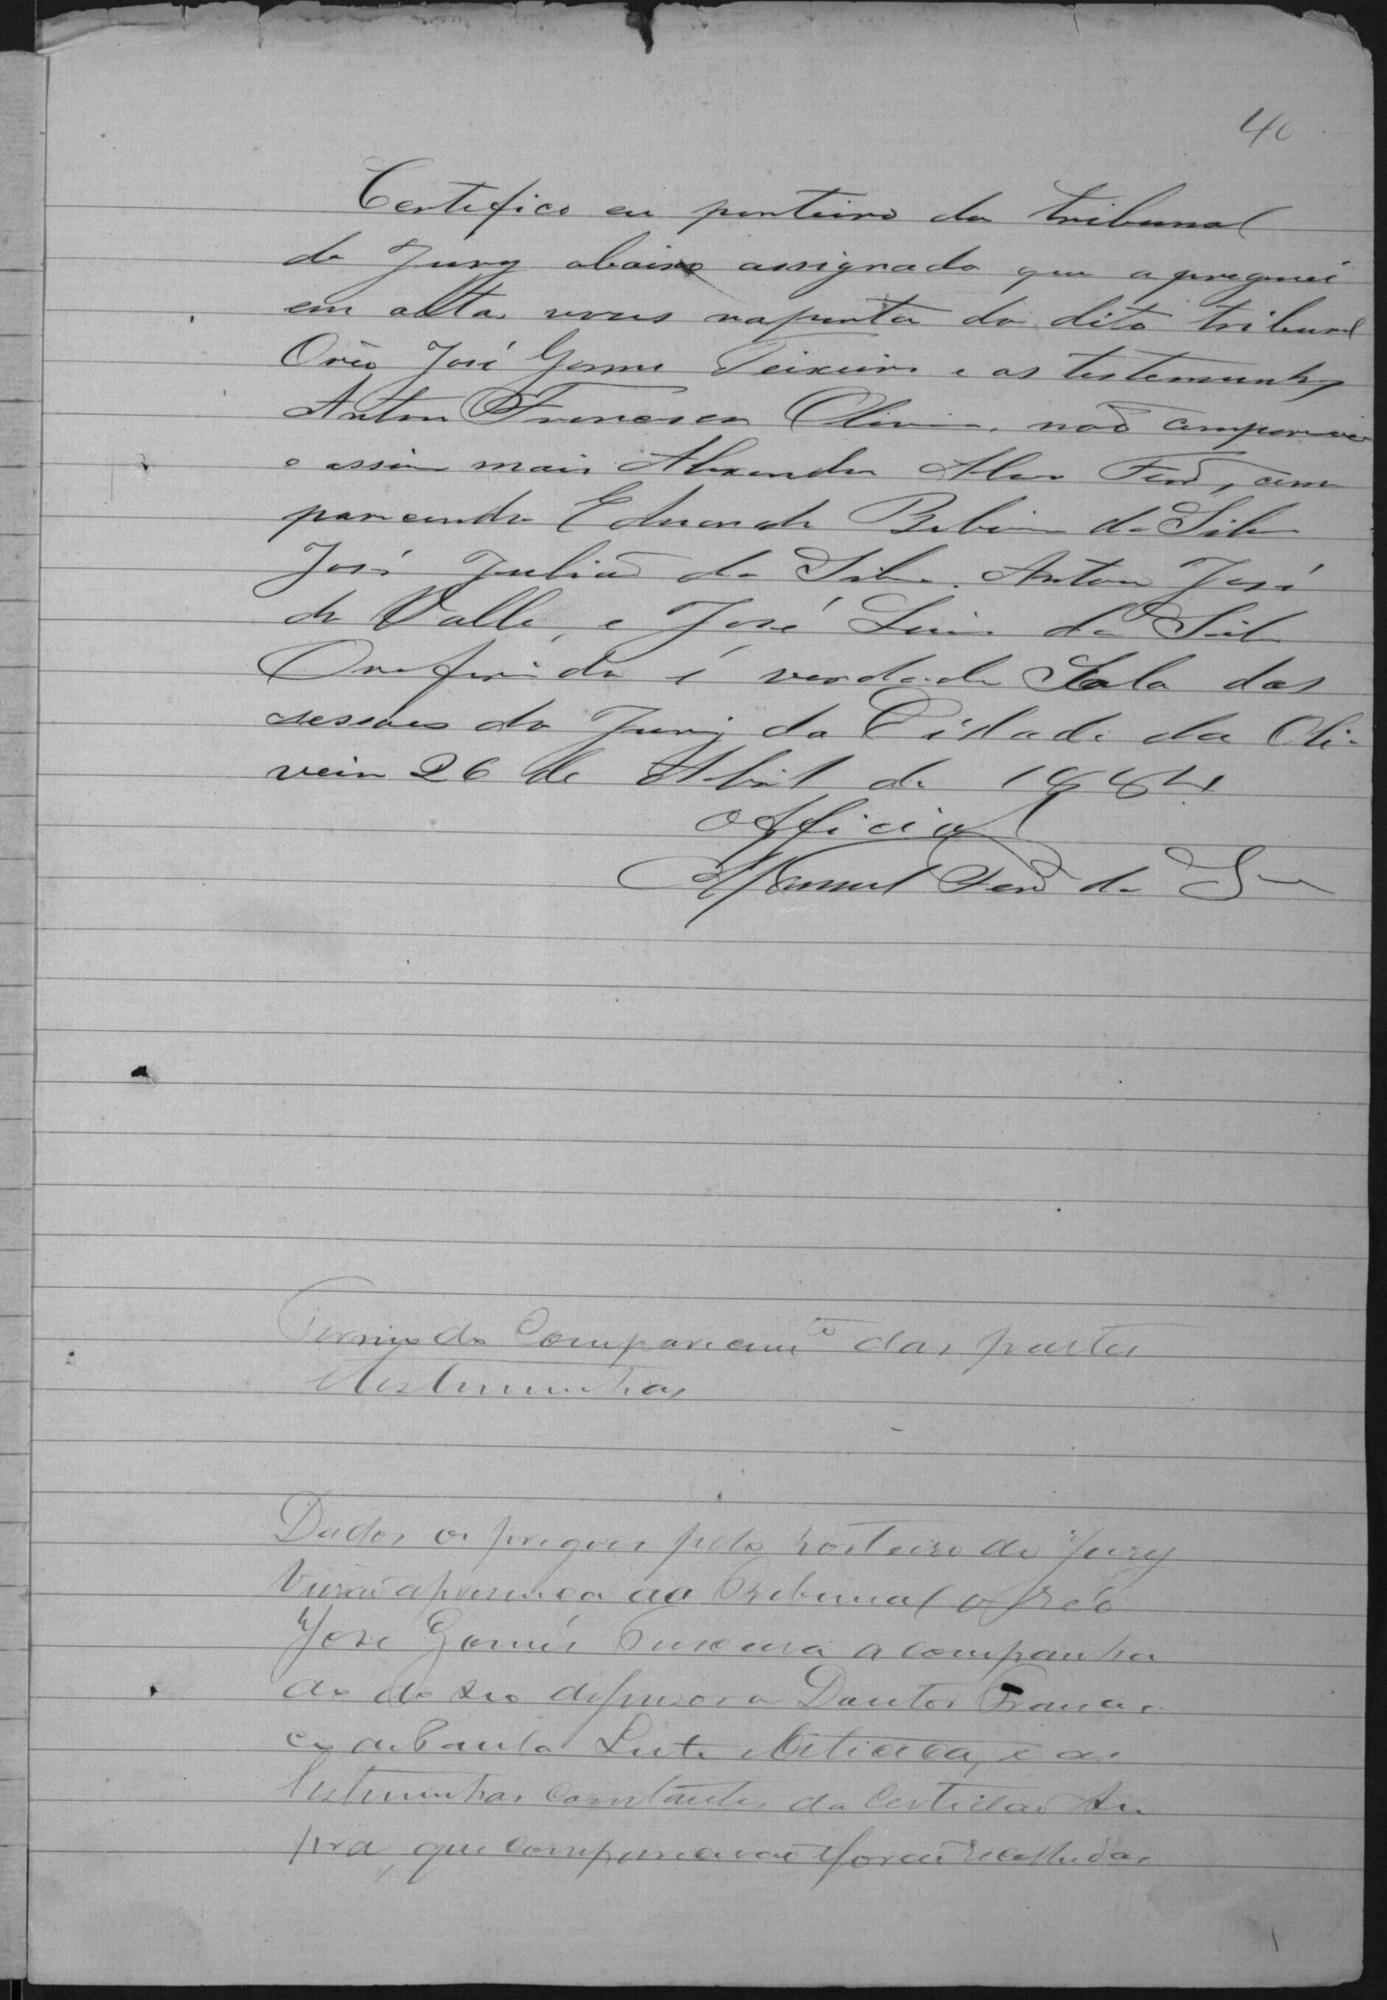 40
Certefico eu porteiro do tribunal
do Jury abaixo assignado que apreguei
em alta vous naporta do dito tribunal
Oréo José Gomes Teixeira e as testemunhas
Antonio Francisco Oliveira, não compareceu
e assim mais Alexandre Alves Ferrª, com
parecendo Eduardo da Silva
José Julião da Silva, Antonio José
do Valle, e José Luis da Silva
Oreferido é verdade Sala das
sessoes do Jury da Cidade da Oli-
veira 26 de Abril de 1884
Official
Manuel Ferrª da
Termo de Comparecimtº das partes
etestemunhas
Dados os pregois pelo Porteiro do Jury
Vierão apresença do Tribunal o réo
José Gomes Teixeira acompanha
do do seo defensor o Doutor Francis
co de Paula Leite e Oiticica, e as
testemunhas constantes da Certidão Su
pra, que comparecerão eforão recolhidas